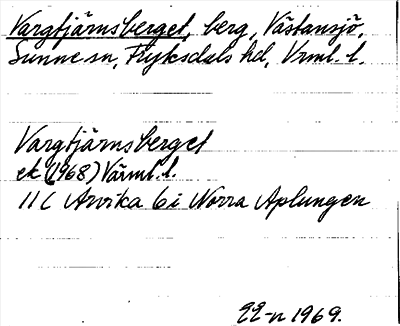 Vargtjärnsberget, berg, Västansjö,
Sunne sn, Fryksdals hd, Vrml. l.
Vargtjärnsberget
ek (1968) Värml. l.
11C Arvika 6i Norra Aplungen
1969.